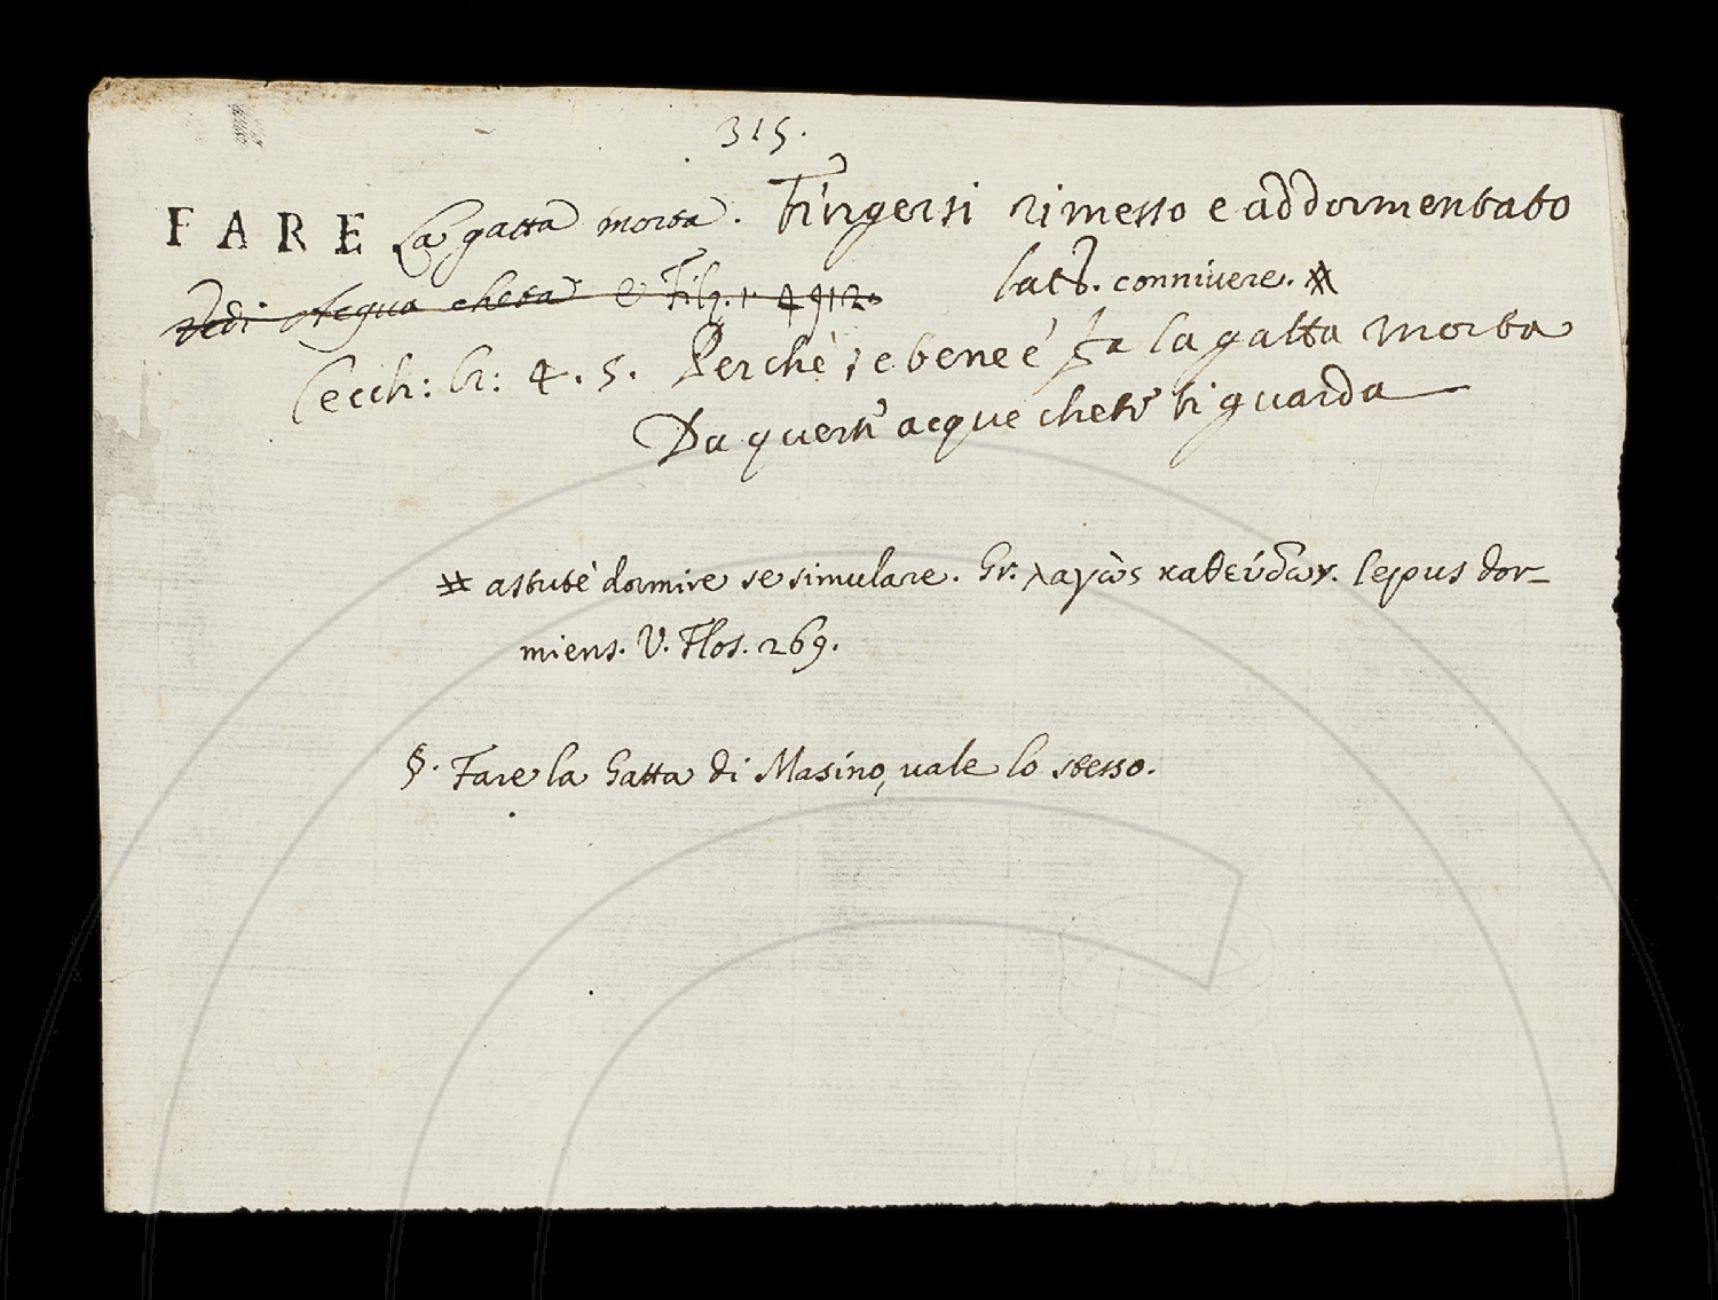 315.
FARE La gatta morta. Fingersi rimesso e addormentato
Vedi Acqua cheta e Filz. 1. 4912. latt. connivere. #
Cecch: 4. 5. Perche se bene e' fa la gatta morta
Da quest' acque chete ti guarda
# astutè dormire se simulare. Gr. λαγὼς καθεύδων. lepus dor-
miens. V. Flos. 269.
§. Fare la Gatta di Masino, vale lo stesso.